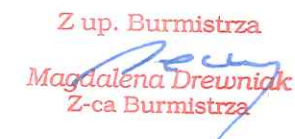 Z up. Burmistrza
Magdalena Drewniak
Z-ca Burmistrza